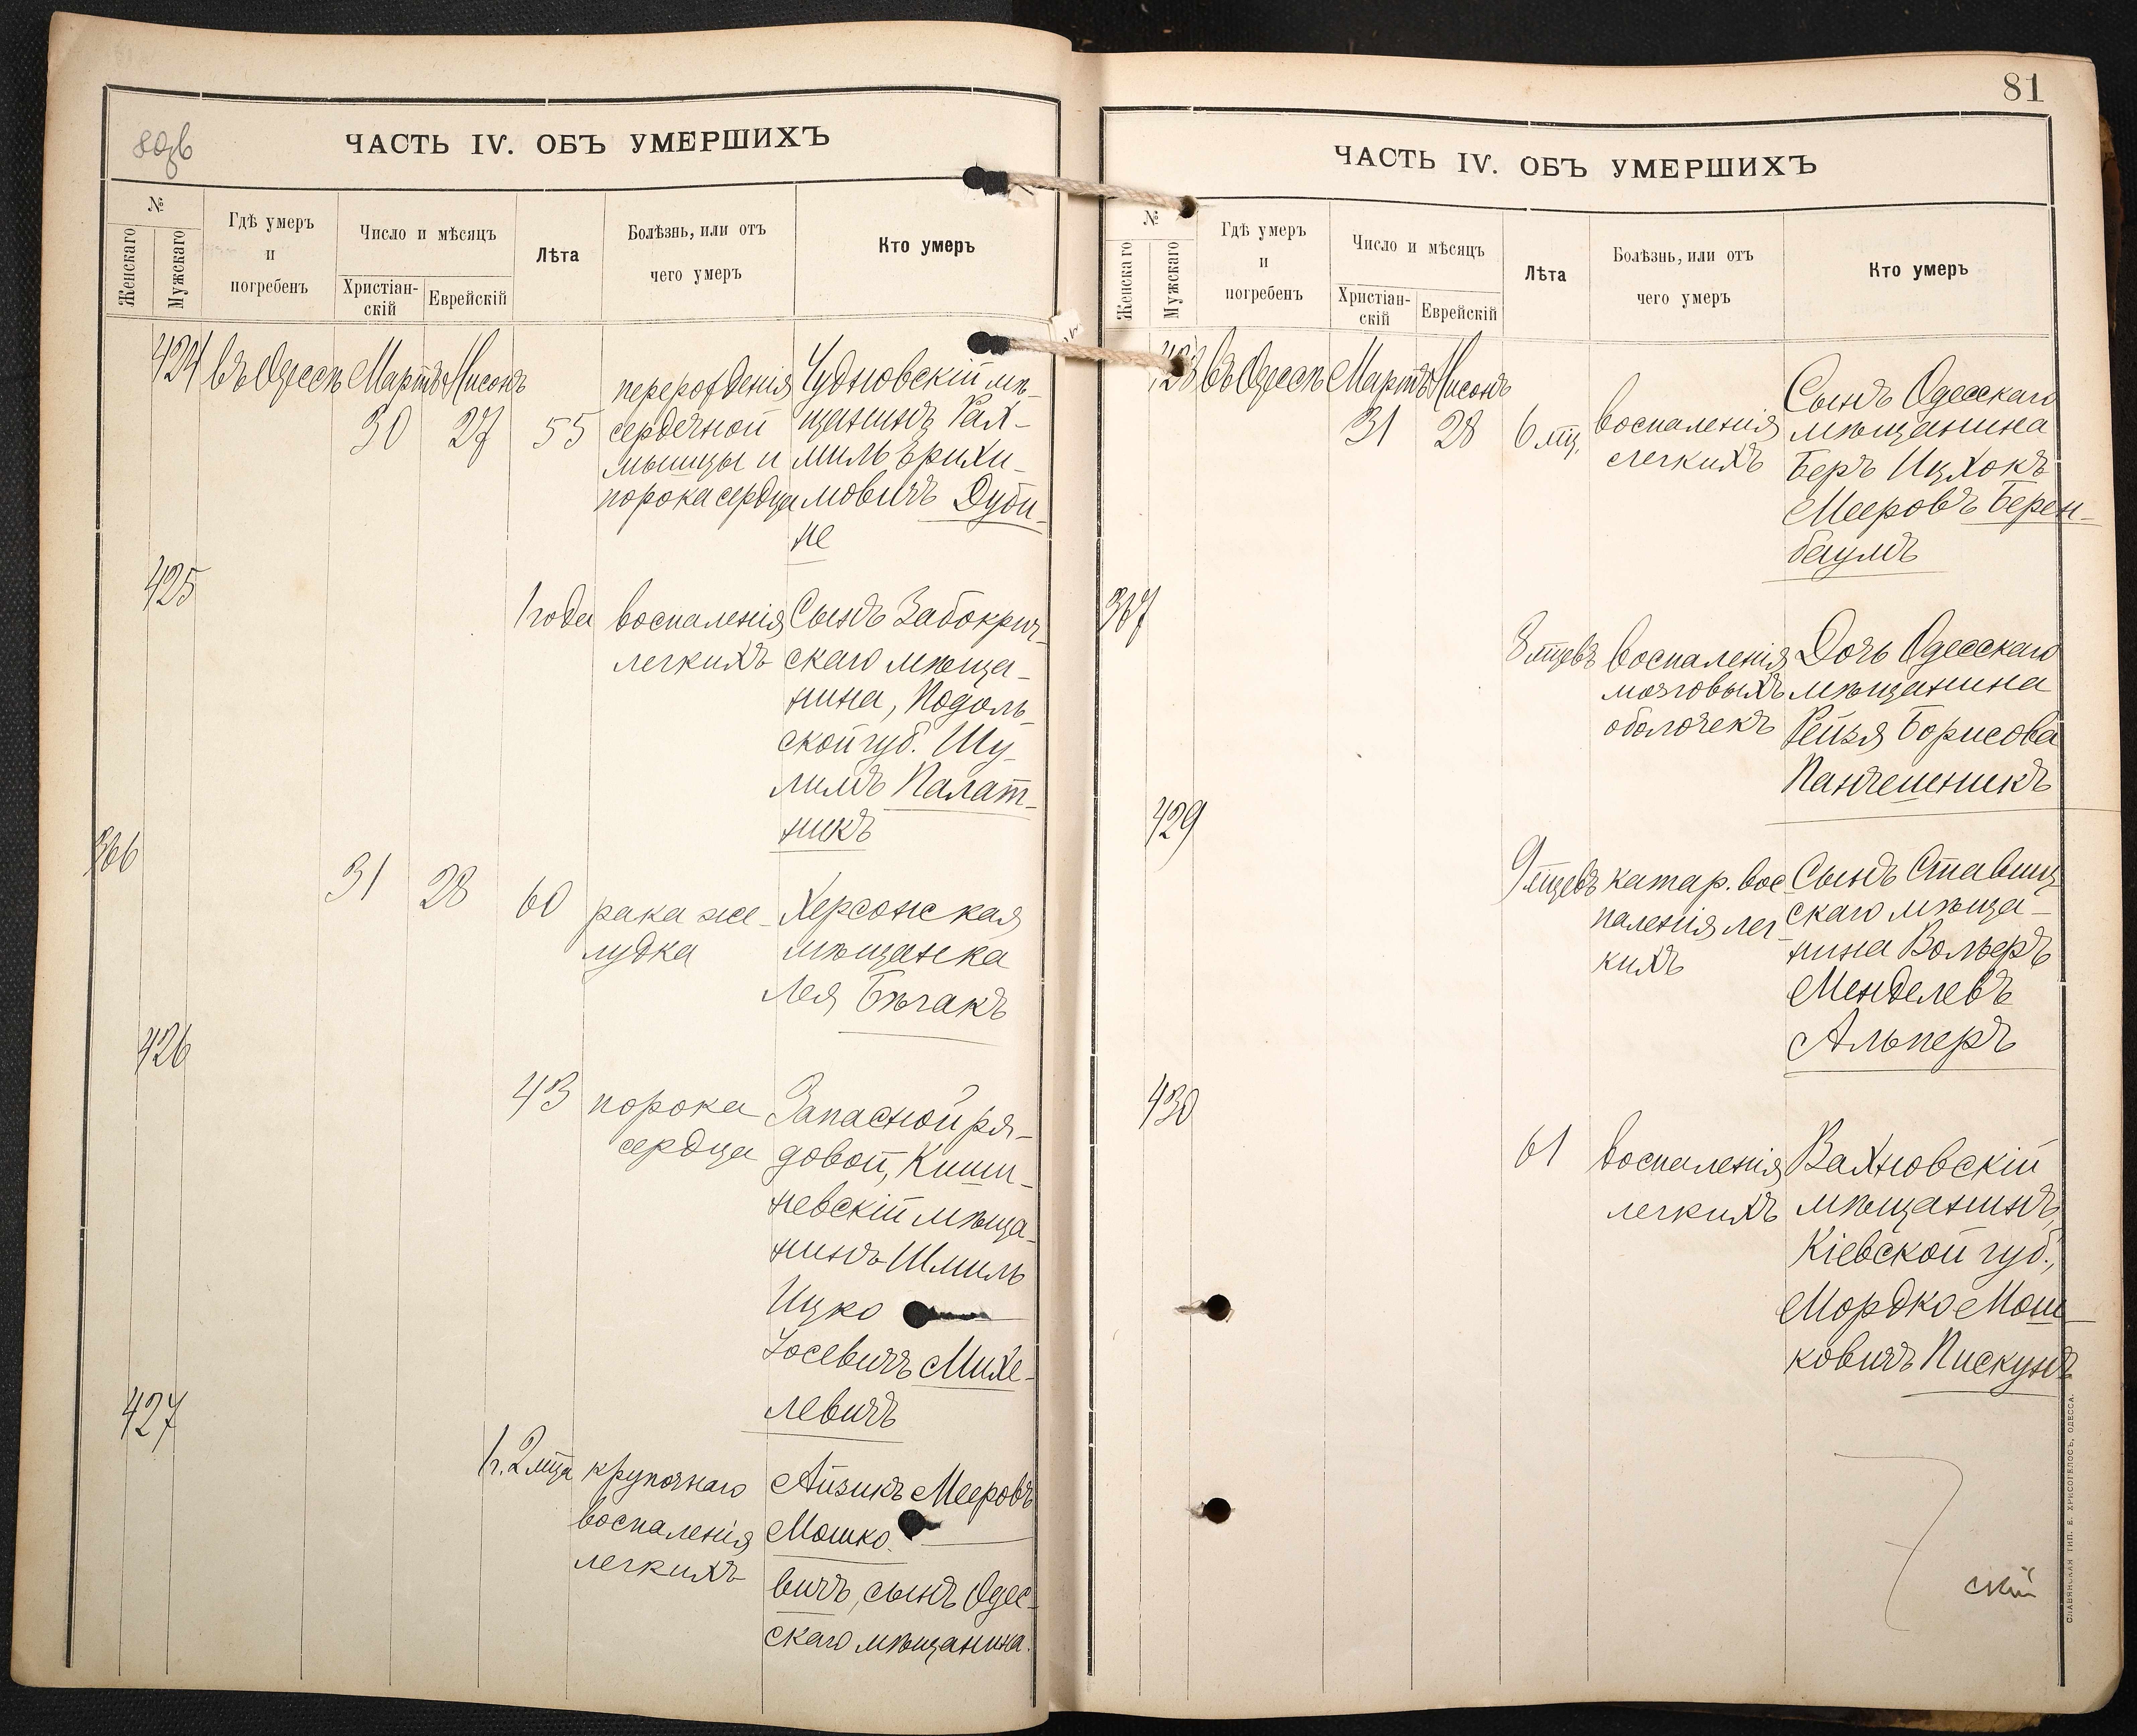 80об
ЧАСТЬ IV. ОБЪ УМЕРШИХЪ
№
Женскаго
Мужскаго
Гдѣ умеръ
и
погребенъ
Число и мѣсяцъ
Христіан-
скій
Еврейскій
Лѣта
Болѣзнь, или отъ
чего умеръ
Кто умеръ
424 въ Одессѣ Мартъ Нисонъ
30 27 55
перерожденія
сердечной
мышцы и
порока сердца
Чудновскій мѣ-
щанинъ Рах-
миль Ерихи-
мовичъ Дуби-
не
425
1 года
воспаленія
легкихъ
Сынъ Забокрич-
скаго мѣща-
нина, Подоль-
ской губ. Шу-
лимъ Палат-
никъ
366
31 28 60
рака же-
лудка
Херсонская
мѣщанка
Лея Бѣгакъ
426
43
порока
сердца
Запасной ря-
довой, Киши-
невскій мѣща-
нинъ Шмиль
Ицко
Іосевичъ Михе-
левичъ
427
1 г. 2 мца
крупознаго
воспаленія
легкихъ
Айзикъ Мееровъ
Мошко-
вичъ, сынъ Одес-
скаго мѣщанина.
81
ЧАСТЬ IV. ОБЪ УМЕРШИХЪ
№
Женскаго
Мужскаго
Гдѣ умеръ
и
погребенъ
Число и мѣсяцъ
Христіан-
скій
Еврейскій
Лѣта
Болѣзнь, или отъ
чего умеръ
Кто умеръ
428 въ Одессѣ Мартъ Нисонъ
31 28 6 мц.
воспаленія
легкихъ
Сынъ Одесскаго
мѣщанина
Беръ Ицхокъ
Мееровъ Берен-
баумъ
367
8 мцевъ
воспаленія
мозговыхъ
оболочекъ
Дочь Одесскаго
мѣщанина
Рейзя Борисова
Панчешникъ
429
9 мцевъ
катар. вос-
паленія лег-
кихъ
Сынъ Ставищ-
скаго мѣща-
нина Вольфъ
Менделевъ
Альперъ
430
61
воспаленія
легкихъ
Вахновскій
мѣщанинъ,
Кіевской губ.,
Мордко Мош-
ковичъ Пискунъ
скій
СЛАВЯНСКАЯ ТИП. Е. ХРИСОГЕЛОСЪ, ОДЕССА.